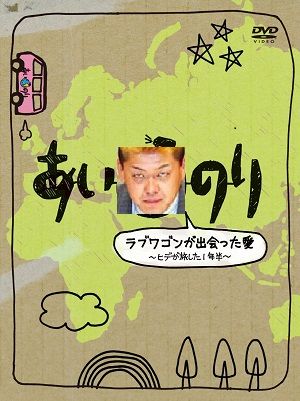 DVD
VIDEO
あいのり
ラブワゴンが出会った愛
〜ヒデが旅した1年半〜